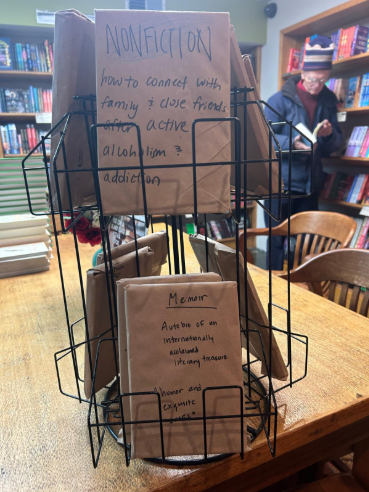 NONFICTION
how to connect with
family & close friends
after active
alcoholism &
addiction
Memoir
Autobio of an
internationally
acclaimed
literary treasure
humor and
exquisite